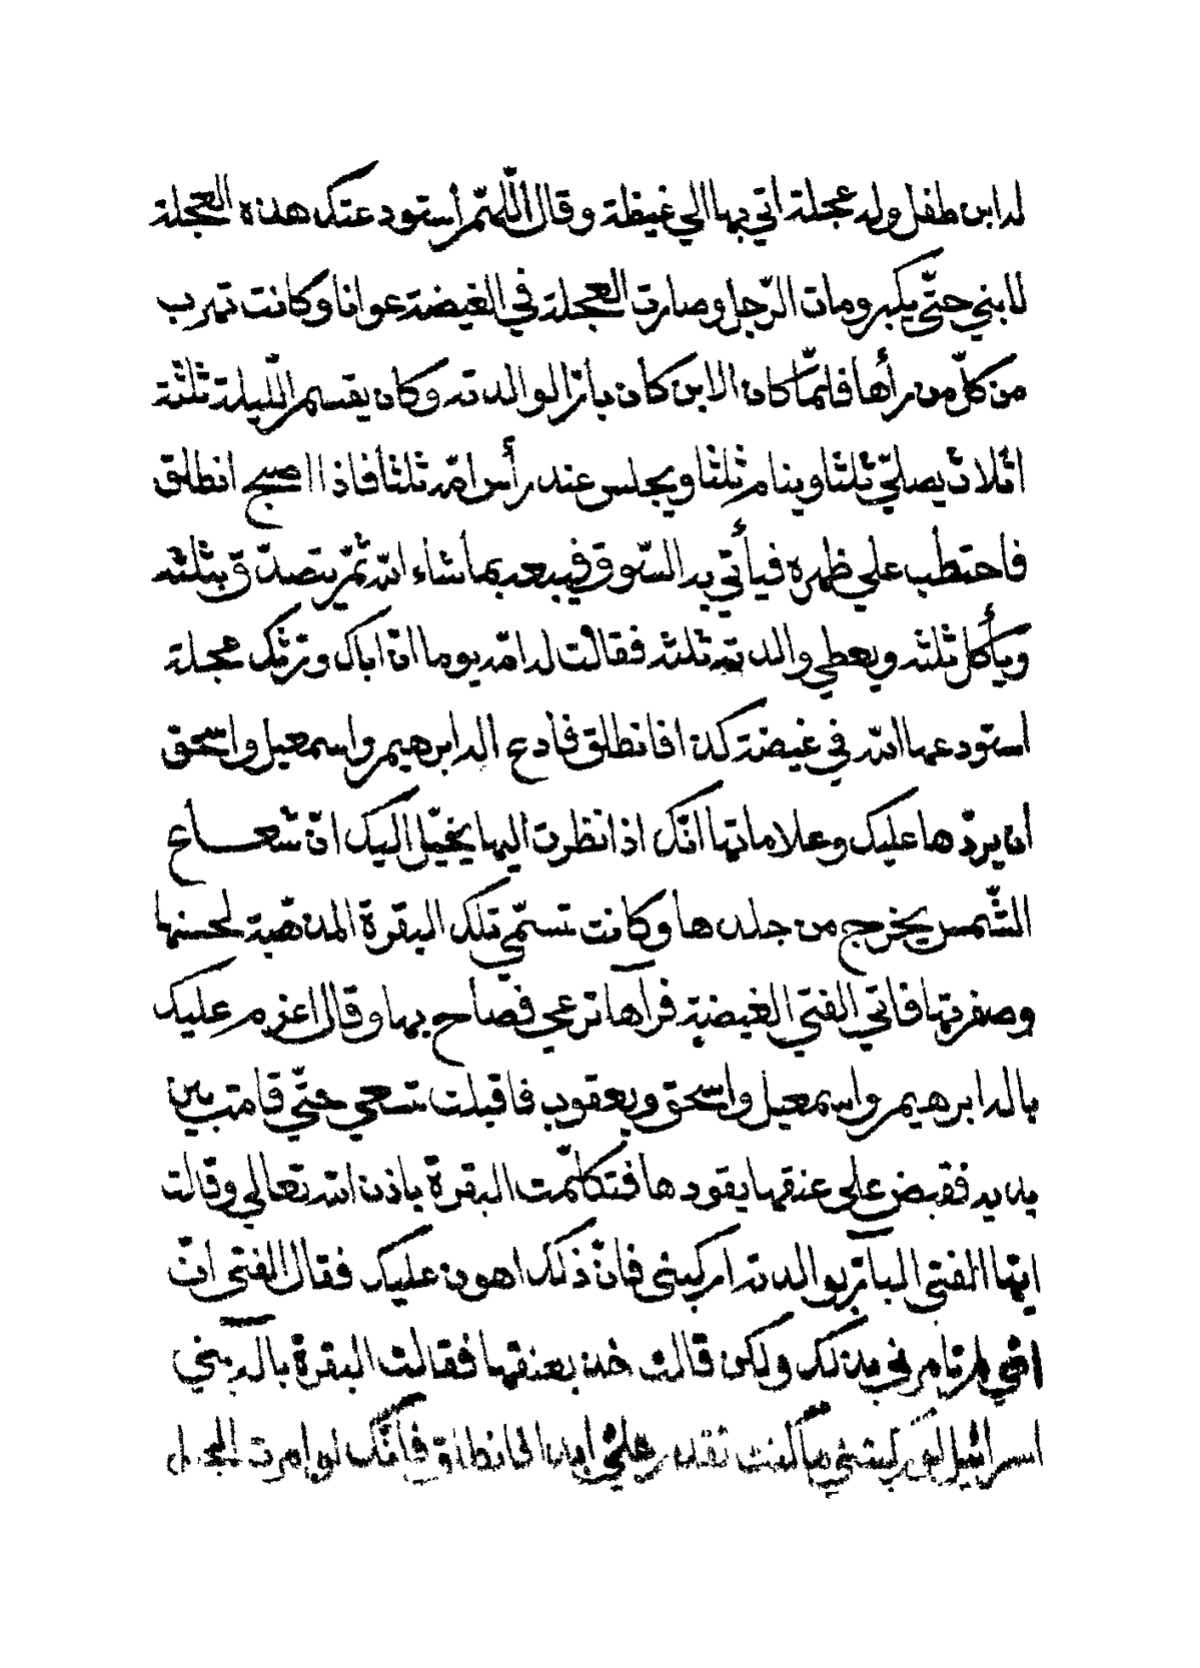 له ابن طفل وله عجلة اتي بها الي غيظة وقال اللّهمّ أستودعتك هذه العجلة
لابني حتّي يكبر ومات الرّجل وصارت العجلة في الغيضة عوانا وكانت تهرب
من كلّ من رأها فلمّا كان الابن كان بارّا لوالدته وكان يقسم اللّيلة ثلثة
اثلاث يصلّي ثلثا وينام ثلثا ويجلس عند رأس امّه ثلثا فاذا اصبح انطلق
فاحتطب علي ظهره فيأتي به السّوق فيبيعه بما شاء الله ثمّ يتصدّق بثلثه
ويأكل ثلثه ويعطي والدته ثلثه فقالت له امّه يوما انّ اباك ورثك عجلة
استودعها الله في غيضة كذا فانطلق فادع اله ابرهيم واسمعيل واسحق
ان يردّها عليك وعلاماتها انّك اذا نظرت اليها يخيّل اليك انّ شعاع
الشّمس يخرج من جلدها وكانت تسمّي تلك البقرة المذهبة لحسنها
وصفرتها فاتي الفتي الغيضة فرآها ترعي فصاح بها وقال اعزم عليك
باله ابرهيم واسمعيل واسحق ويعقوب فاقبلت تسعي حتّي قامت بين
يديه فقبض علي عنقها يقودها فتكلّمت البقرة باذن الله تعالي وقالت
ايّها الفتي البآرّ بوالدته اركبني فانّ ذلك اهون عليك فقال الفتي انّ
امّي لم تامرني بذلك ولكن قالت خذ بعنقها فقالت البقرة بآله بني
اسرائيل لو ركبتني ما كنت تقدر عليّ ابدا فانطلق فانّك لو امرت الجبل